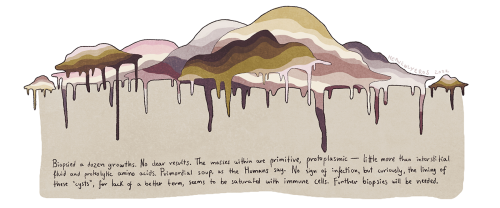 Biopsied a dozen growths. No clear results. The masses within are primitive, protoplasmic — little more than interstitial
fluid and proteolytic amino acids. Primordial soup, as the Humans say. No sign of infection, but curiously, the lining of
these "cysts", for lack of a better term, seems to be saturated with immune cells. Further biopsies will be needed.